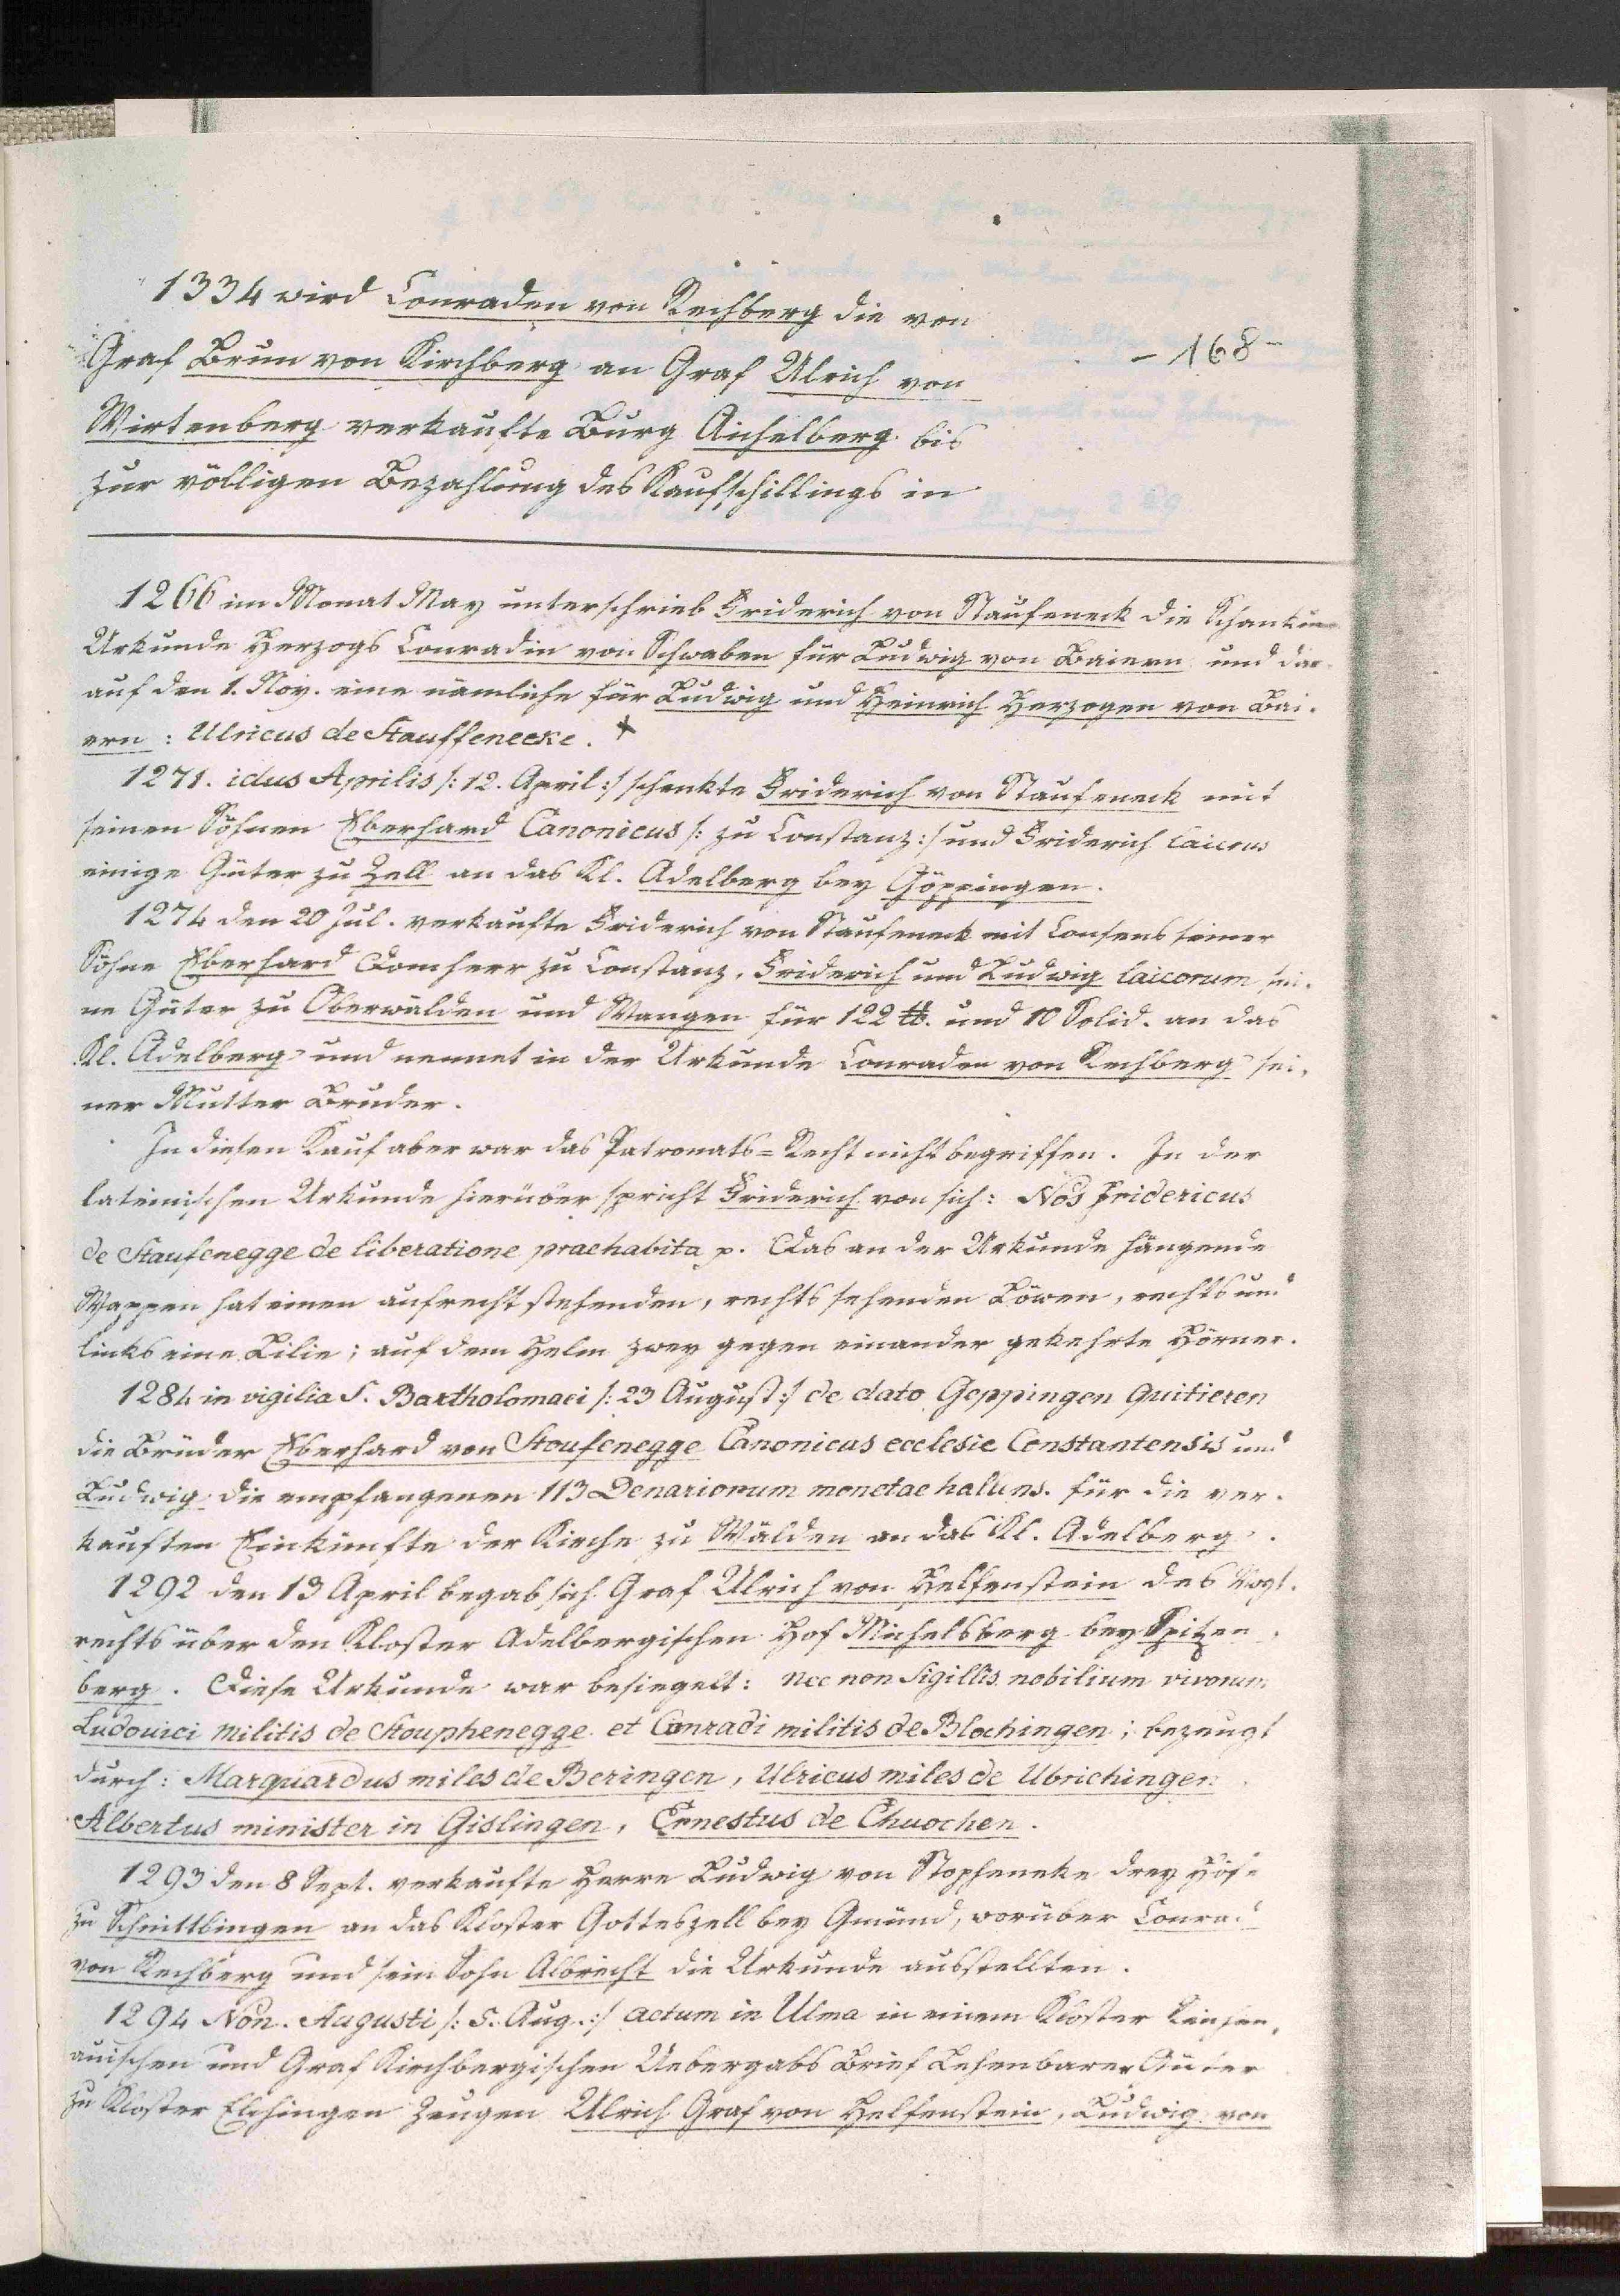 1334 wird Conraden von Rechberg die von
Graf Brun von Kirchberg an Graf Ulrich von
- 168 -
Wirtenberg verkaufte Burg Aichelberg bis
zur völligen Bezahlung des Kaufschillings in
1266 im Monat May unterschrieb Friderich von Staufeneck die Schankun
Urkunde Herzogs Conradin von Schwaben für Ludwig von Baiern und dar
auf den 1. Nov. eine nämliche für Ludwig und Heinrich Herzogen von Bai-
ern: Ulricus de Stauffenecke.
1271. idus Aprilis /: 12. April :/ schenkte Friderich von Staufeneck mit
seinen Söhnen Eberhard Canonicus /: zu Constanz :/ und Friderich laicus
einige Güter zu Zell an das Kl. Adelberg bey Göppingen.
1274 den 20 Jul. verkaufte Friderich von Staufeneck mit Consens seiner
Söhne Eberhard Domherr zu Constanz, Friderich und Ludwig laicorum sei-
ne Güter zu Oberwälden und Wangen für 122 ℔. und 10 Solid. an das
Kl. Adelberg und nennet in der Urkunde Conraden von Rechberg sei-
ner Mutter Bruder.
In diesen Kauf aber war das Patronats=Recht nicht begriffen. In der
lateinischen Urkunde hierüber spricht Friderich von sich: Nos Fridericus
de Staufenegge de liberatione praehabita p. Das an der Urkunde hängende
Wappen hat einen aufrecht stehenden, rechts sehenden Löwen, rechts und
links eine Lilie; auf dem Helm zwey gegen einander gekehrte Hörner.
1284 in vigilia S. Bartholomaei /: 23 August :/ de dato Geppingen quitieren
die Brüder Eberhard von Stoufenegge Canonicus ecclesie Constantensis und
Ludwig die empfangenen 113 Denariorum monetae hallens. für die ver-
kauften Einkünfte der Kirche zu Wälden an das Kl. Adelberg.
1292 den 13 April begab sich Graf Ulrich von Helfenstein des Vogt-
rechts über den Kloster Adelbergischen Hof Michelsberg bey Spitzen-
berg. Diese Urkunde war besiegelt: nec non Sigillis nobilium virorum
Ludovici militis de Stouphenegge et Conradi militis de Blochingen; bezeugt
durch: Marquardus miles de Beringen, Ulricus miles de Ubrichingen
Albertus minister in Gislingen, Ernestus de Chuochen.
1293 den 8 Sept. verkaufte Herre Ludwig von Stopheneke drey Höfe
zu Schnittlingen an das Kloster Gotteszell bey Gmünd, worüber Conrad
von Rechberg und sein Sohn Albrecht die Urkunde ausstellten.
1294 Non. Augusti /: 5. Aug. :/ actum in Ulma in einem Kloster
auischen und Graf Kirchbergischen Uebergabs Brief Lehenbarer Güter
zu Kloster Elchingen Zeugen Ulrich Graf von Helfenstein, Ludwig von